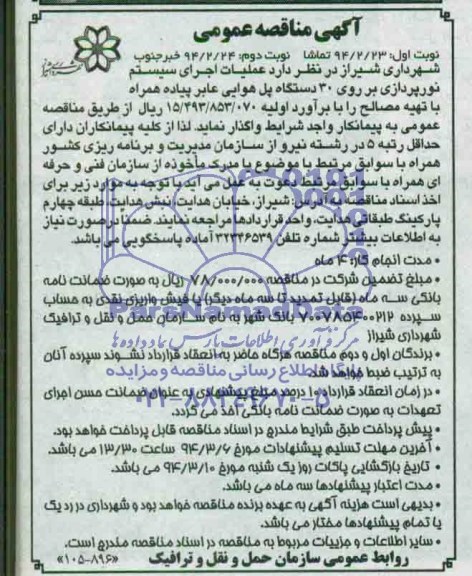 آگهی مناقصه عمومی
نوبت اول: ۹۴/۲/۲۳ تماشا نوبت دوم: ۹۴/۲/۲۴ خبرجنوب
شهرداری شیراز در نظر دارد عملیات اجرای سیستم
نورپردازی بر روی ۳۰ دستگاه پل هوایی عابر پیاده همراه
با تهیه مصالح را با برآورد اولیه ۱۵/۴۹۳/۸۵۳/۰۷۰ ریال از طریق مناقصه
عمومی به پیمانکار واجد شرایط واگذار نماید. لذا از کلیه پیمانکاران دارای
حداقل رتبه ۵ در رشته نیرو از سازمان مدیریت و برنامه ریزی کشور
همراه با سوابق مرتبط با موضوع یا مدرک مأخوذه از سازمان فنی و حرفه
ای همراه با سوابق مرتبط دعوت به عمل می آید با توجه به موارد زیر برای
اخذ اسناد مناقصه به آدرس: شیراز، خیابان هدایت، نبش هدایت طبقه چهارم
پارکینگ طبقاتی هدایت، واحد قراردادها مراجعه نمایند. ضمنا در صورت نیاز
به اطلاعات بیشتر شماره تلفن ۳۲۳۴۶۵۳۹ آماده پاسخگویی می باشد.
• مدت انجام کار: ۴ ماه
• مبلغ تضمین شرکت در مناقصه ۷۸۰/۰۰۰/۰۰۰ ریال به صورت ضمانت نامه
بانکی سه ماه (قابل تمدید تا سه ماه دیگر) یا فیش واریزی نقدی به حساب
سپرده بانک شهر به نام سازمان حمل و نقل و ترافیک
شهرداری شیراز
• برندگان اول و دوم مناقصه هرگاه حاضر به انعقاد قرارداد نشوند سپرده آنان
به ترتیب ضبط خواهد شد.
• در زمان انعقاد قرارداد ۱۰ درصد مبلغ پیشنهادی به عنوان ضمانت حسن اجرای
تعهدات به صورت ضمانت نامه بانکی اخذ می گردد.
• پیش پرداخت طبق شرایط مندرج در اسناد مناقصه قابل پرداخت خواهد بود.
• آخرین مهلت تسلیم پیشنهادات مورخ ۹۴/۳/۶ ساعت ۱۳/۳۰ می باشد.
• تاریخ بازگشایی پاکات روز یک شنبه مورخ ۹۴/۳/۱۰ می باشد.
• مدت اعتبار پیشنهادها سه ماه می باشد.
• بدیهی است هزینه آگهی به عهده برنده مناقصه خواهد بود و شهرداری در رد یک
یا تمام پیشنهادها مختار می باشد.
• سایر اطلاعات و جزییات مربوط به مناقصه در اسناد مناقصه مندرج است.
روابط عمومی سازمان حمل و نقل و ترافیک «۱۰۵-۸۹۶»
ParsNamadData
مرکز فرآوری اطلاعات پارس نماد داده ها
پایگاه اطلاع رسانی مناقصه و مزایده
۰۲۱-۸۸۳۴۹۶۷۰-۵